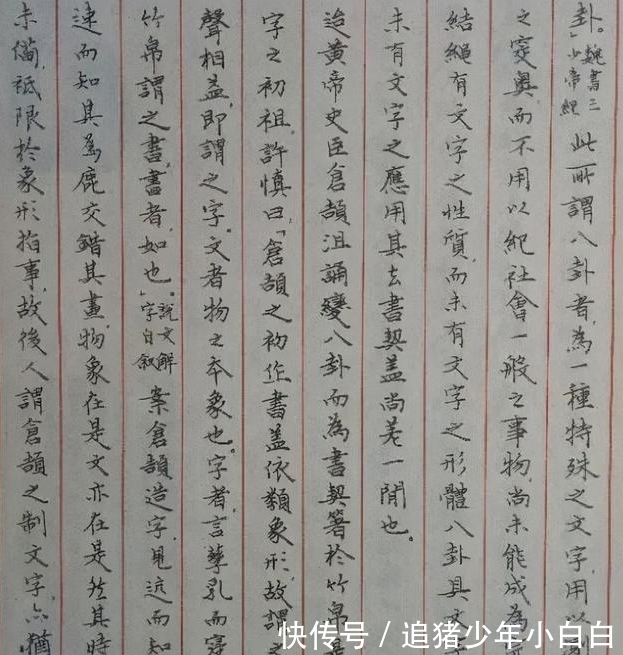 卦。」魏書三少帝紀 此所謂八卦者，為一種特殊之文字，用以
之突奧，而不用以紀社會一般之事物，尚未能成為
結繩有文字之性質，而未有文字之形體八卦具
未有文字之應用其去書契蓋尚差一間也。
迨黃帝史臣倉頡沮誦變八卦而為書契箸於竹帛
字之初祖，許慎曰，「倉頡之初作書蓋依類象形，故謂之
聲相益，即謂之字。文者物之本象也。字者，言孳乳而寖
竹帛謂之書，書者，如也。」說文解字自叙 案倉頡造字，見迒而知
速而知其為鹿交錯其畫，物象在是文亦在是然其時
未備，祇限於象形指事，故後人謂倉頡之制文字，亦猶
快传号 / 追猪少年小白白